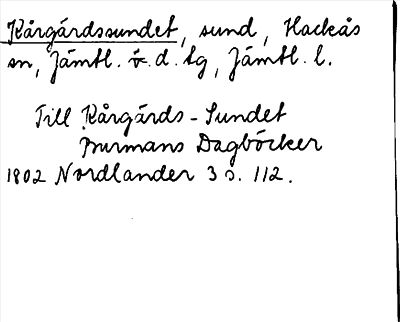 Kårgärdssundet, sund, Hackås
sn, Jämtl. v. d. tg, Jämtl. l.
Till Kårgärds-Sundet
Burmans Dagböcker
1802 Nordlander 3 s. 112.